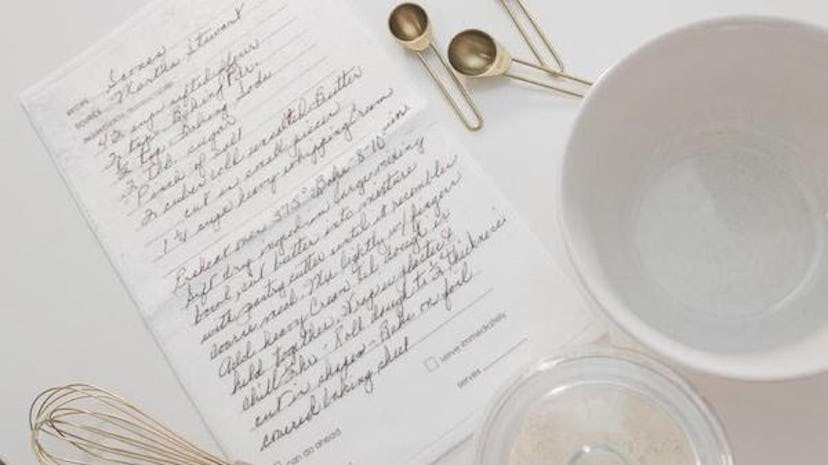 RECIPE: Scones
SOURCE: Martha Stewart
4 1/2 cups sifted flour
2 tsps. Baking Pdr.
1/2 tsp. Baking Soda
3 Tbl. sugar
Pinch of salt
2 cubes cold unsalted Butter
cut in small pieces
1 1/4 cups heavy whipping cream
Preheat oven 375° - Bake 8-10 min.
Sift dry ingred in large mixing
bowl, cut butter into mixture
with pastry cutter until it resembles
coarse meal. Mix lightly w/ fingers
Add heavy cream til dough is
held together. Wrap in plastic &
chill 1/2 hr - Roll dough to 1/2" thickness
cut in shapes - Bake on foil
covered baking sheet
serve immediately
serves
can do ahead